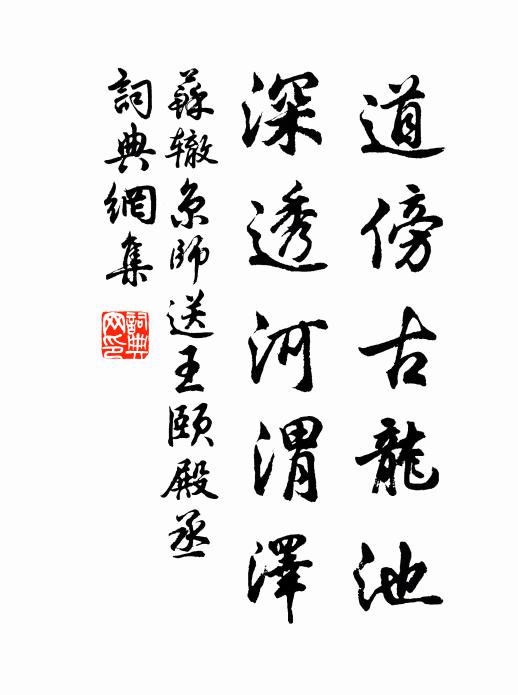 道傍古龍池
深透河渭澤
蘇辙京師送王颐殿丞
詞典網集
詞典
网印